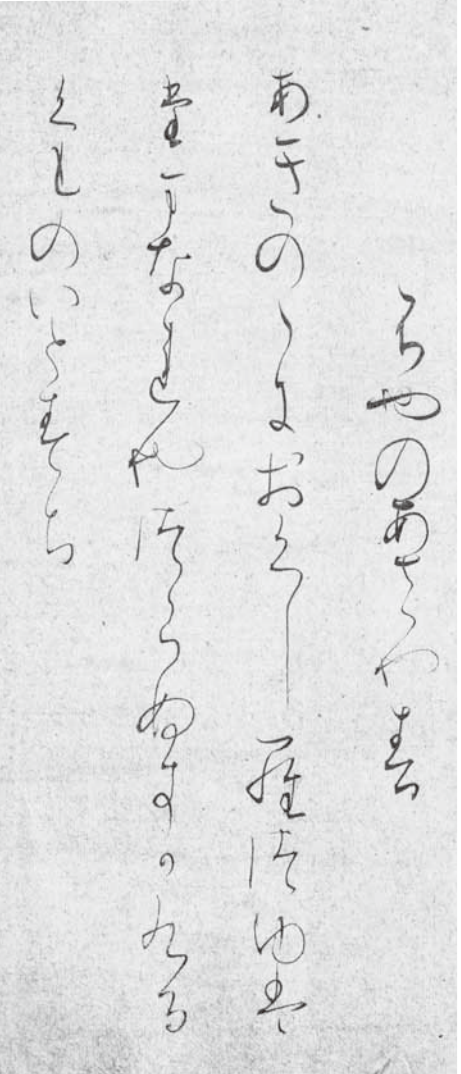 ふんやのあさやす
あきのゝにおくしらつゆは
たまなれやつらぬきかくる
くものいとすち